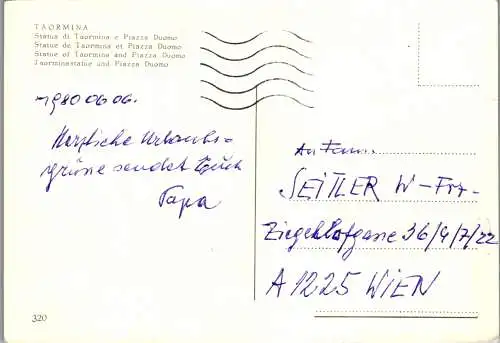 TAORMINA
Statua di Taormina e Piazza Duomo
Statue de Taormina et Piazza Duomo
Statue of Taormina and Piazza Duomo
Taorminastatue und Piazza Duomo
1980 06 06.
Herzliche Urlaubs-
grüsse sendet Euch
Papa
An Fam.
SEITLER W-Frz-
Ziegelhofgasse 36/4/7/22
A 1225 WIEN
320